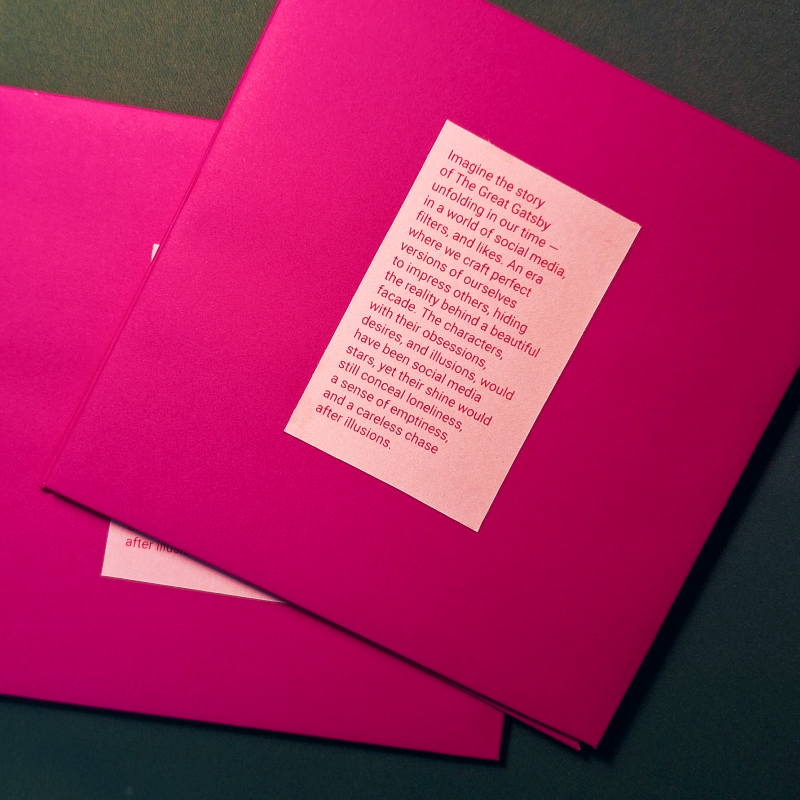 Imagine the story
of The Great Gatsby
unfolding in our time —
in a world of social media,
filters, and likes. An era
where we craft perfect
versions of ourselves
to impress others, hiding
the reality behind a beautiful
facade. The characters,
with their obsessions,
desires, and illusions, would
have been social media
stars, yet their shine would
still conceal loneliness,
a sense of emptiness,
and a careless chase
after illusions.
after